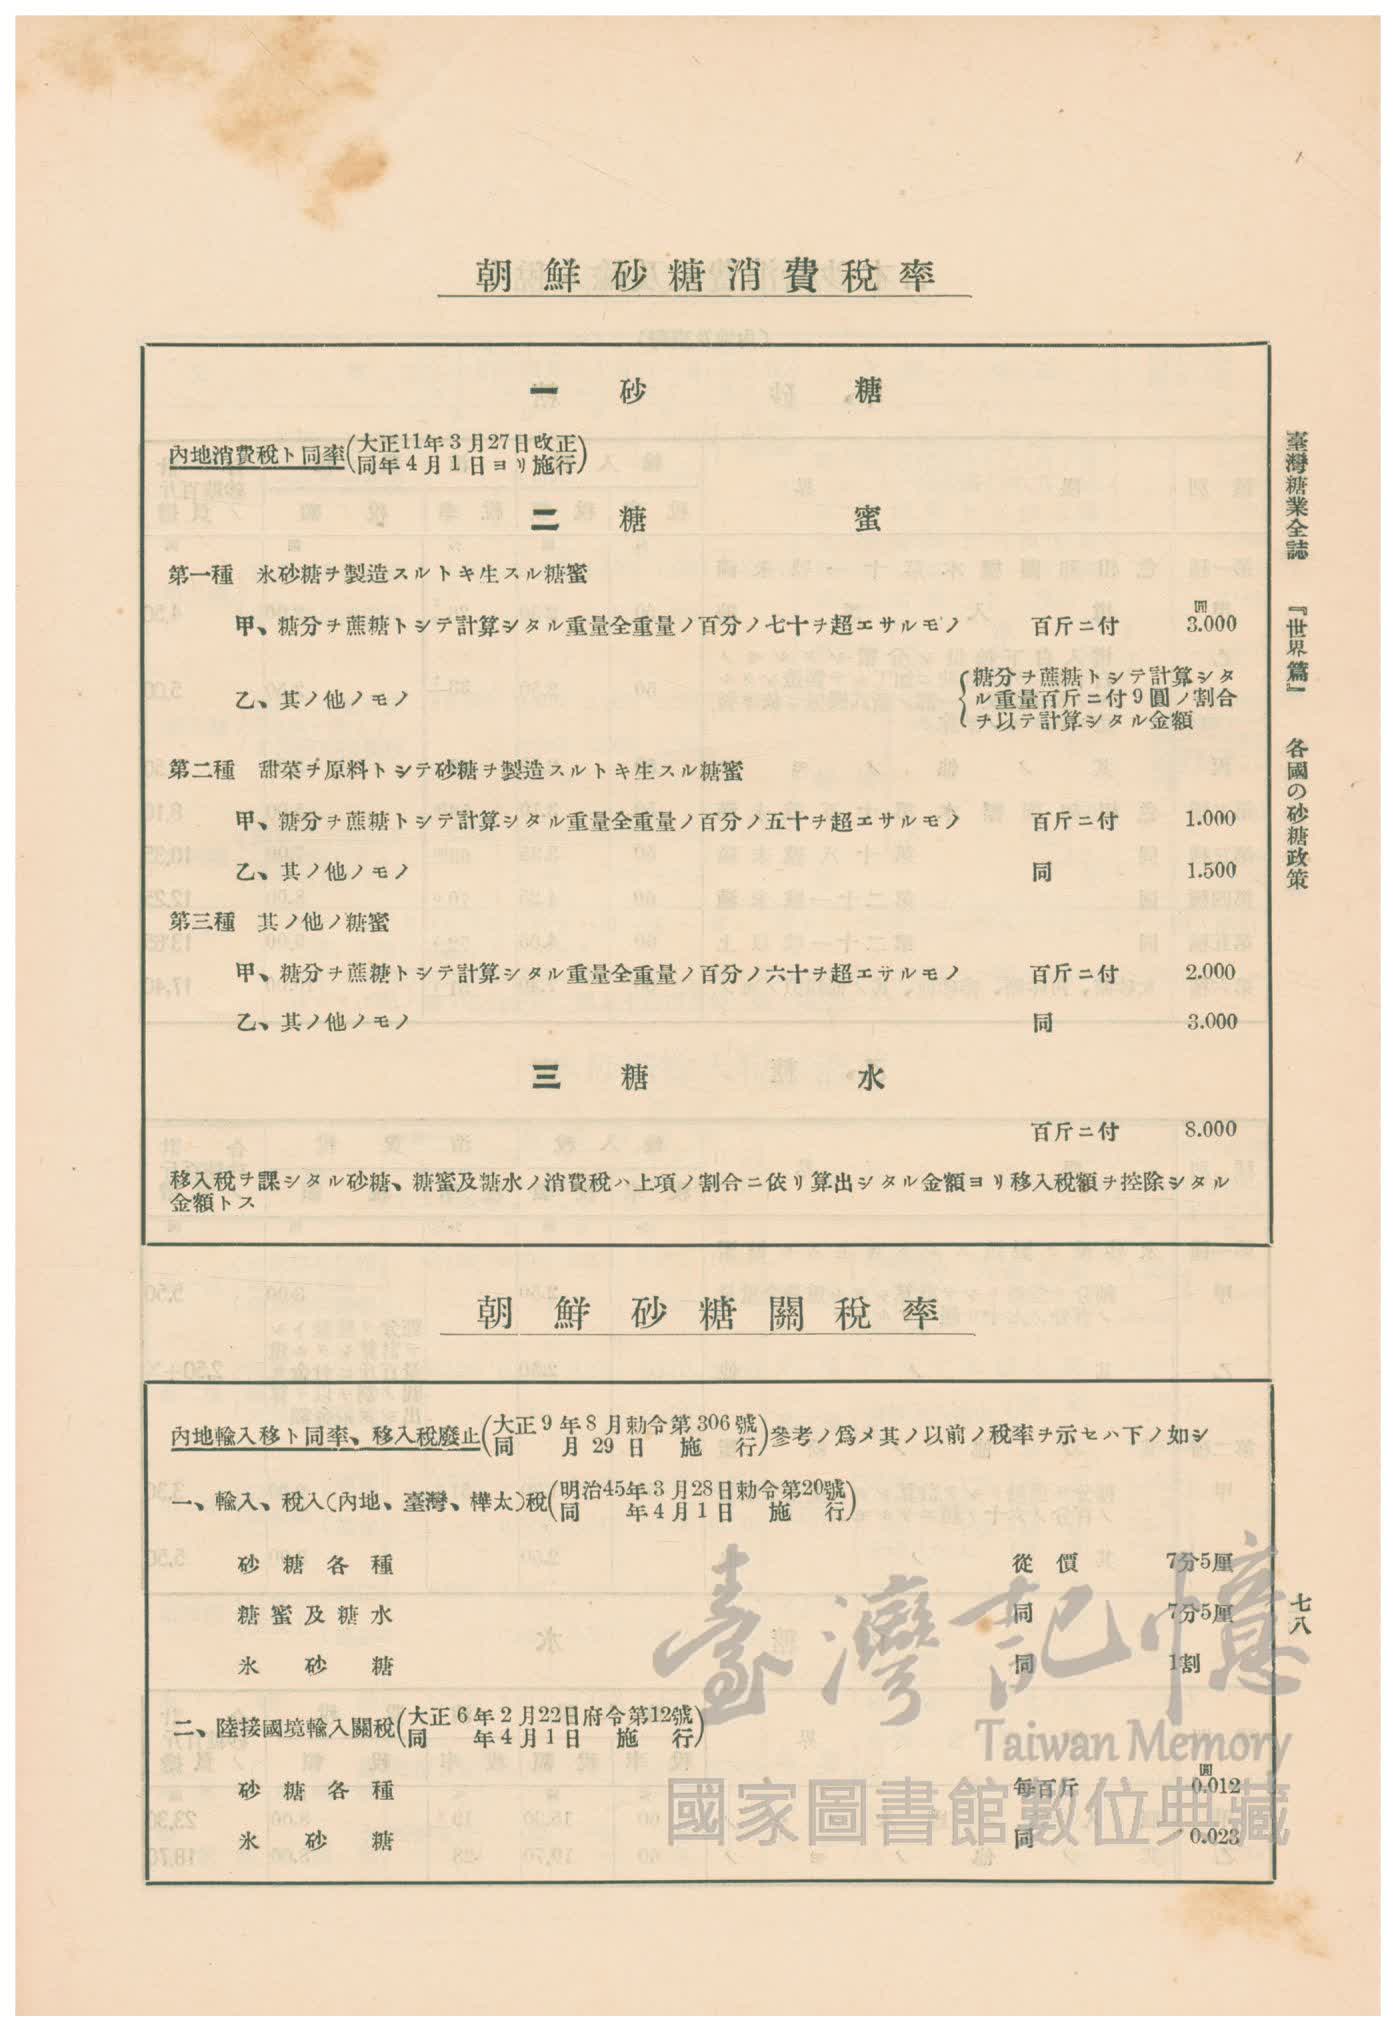 朝鮮砂糖消費稅率
一 砂 糖
內地消費稅ト同率(大正11年3月27日改正
同年4月1日ヨリ施行)
二 糖 蜜
第一種 氷砂糖ヲ製造スルトキ生スル糖蜜
甲、糖分ヲ蔗糖トシテ計算シタル重量全重量ノ百分ノ七十ヲ超エサルモノ 百斤ニ付 3.000圓
乙、其ノ他ノモノ {糖分ヲ蔗糖トシテ計算シタ
ル重量百斤ニ付9圓ノ割合
ヲ以テ計算シタル金額
第二種 甜菜ヲ原料トシテ砂糖ヲ製造スルトキ生スル糖蜜
甲、糖分ヲ蔗糖トシテ計算シタル重量全重量ノ百分ノ五十ヲ超エサルモノ 百斤ニ付 1.000
乙、其ノ他ノモノ 同 1.500
第三種 其ノ他ノ糖蜜
甲、糖分ヲ蔗糖トシテ計算シタル重量全重量ノ百分ノ六十ヲ超エサルモノ 百斤ニ付 2.000
乙、其ノ他ノモノ 同 3.000
三 糖 水
百斤ニ付 8.000
移入稅ヲ課シタル砂糖、糖蜜及糖水ノ消費稅ハ上項ノ割合ニ依リ算出シタル金額ヨリ移入稅額ヲ控除シタル
金額トス
朝鮮砂糖關稅率
內地輸入移ト同率、移入稅廢止(大正9年8月勅令第306號
同 月29日 施 行)參考ノ爲メ其ノ以前ノ稅率ヲ示セハ下ノ如シ
一、輸入、稅入(內地、臺灣、樺太)稅(明治45年3月28日勅令第20號
同 年4月1日 施 行)
砂糖各種 從價 7分5厘
糖蜜及糖水 同 7分5厘
氷砂糖 同 1割
二、陸接國境輸入關稅(大正6年2月22日府令第12號
同 年4月1日 施 行)
砂糖各種 每百斤 0.012圓
氷砂糖 同 0.023
臺灣糖業全誌 『世界篇』 各國の砂糖政策
七八
臺灣記憶
Taiwan Memory
國家圖書館數位典藏